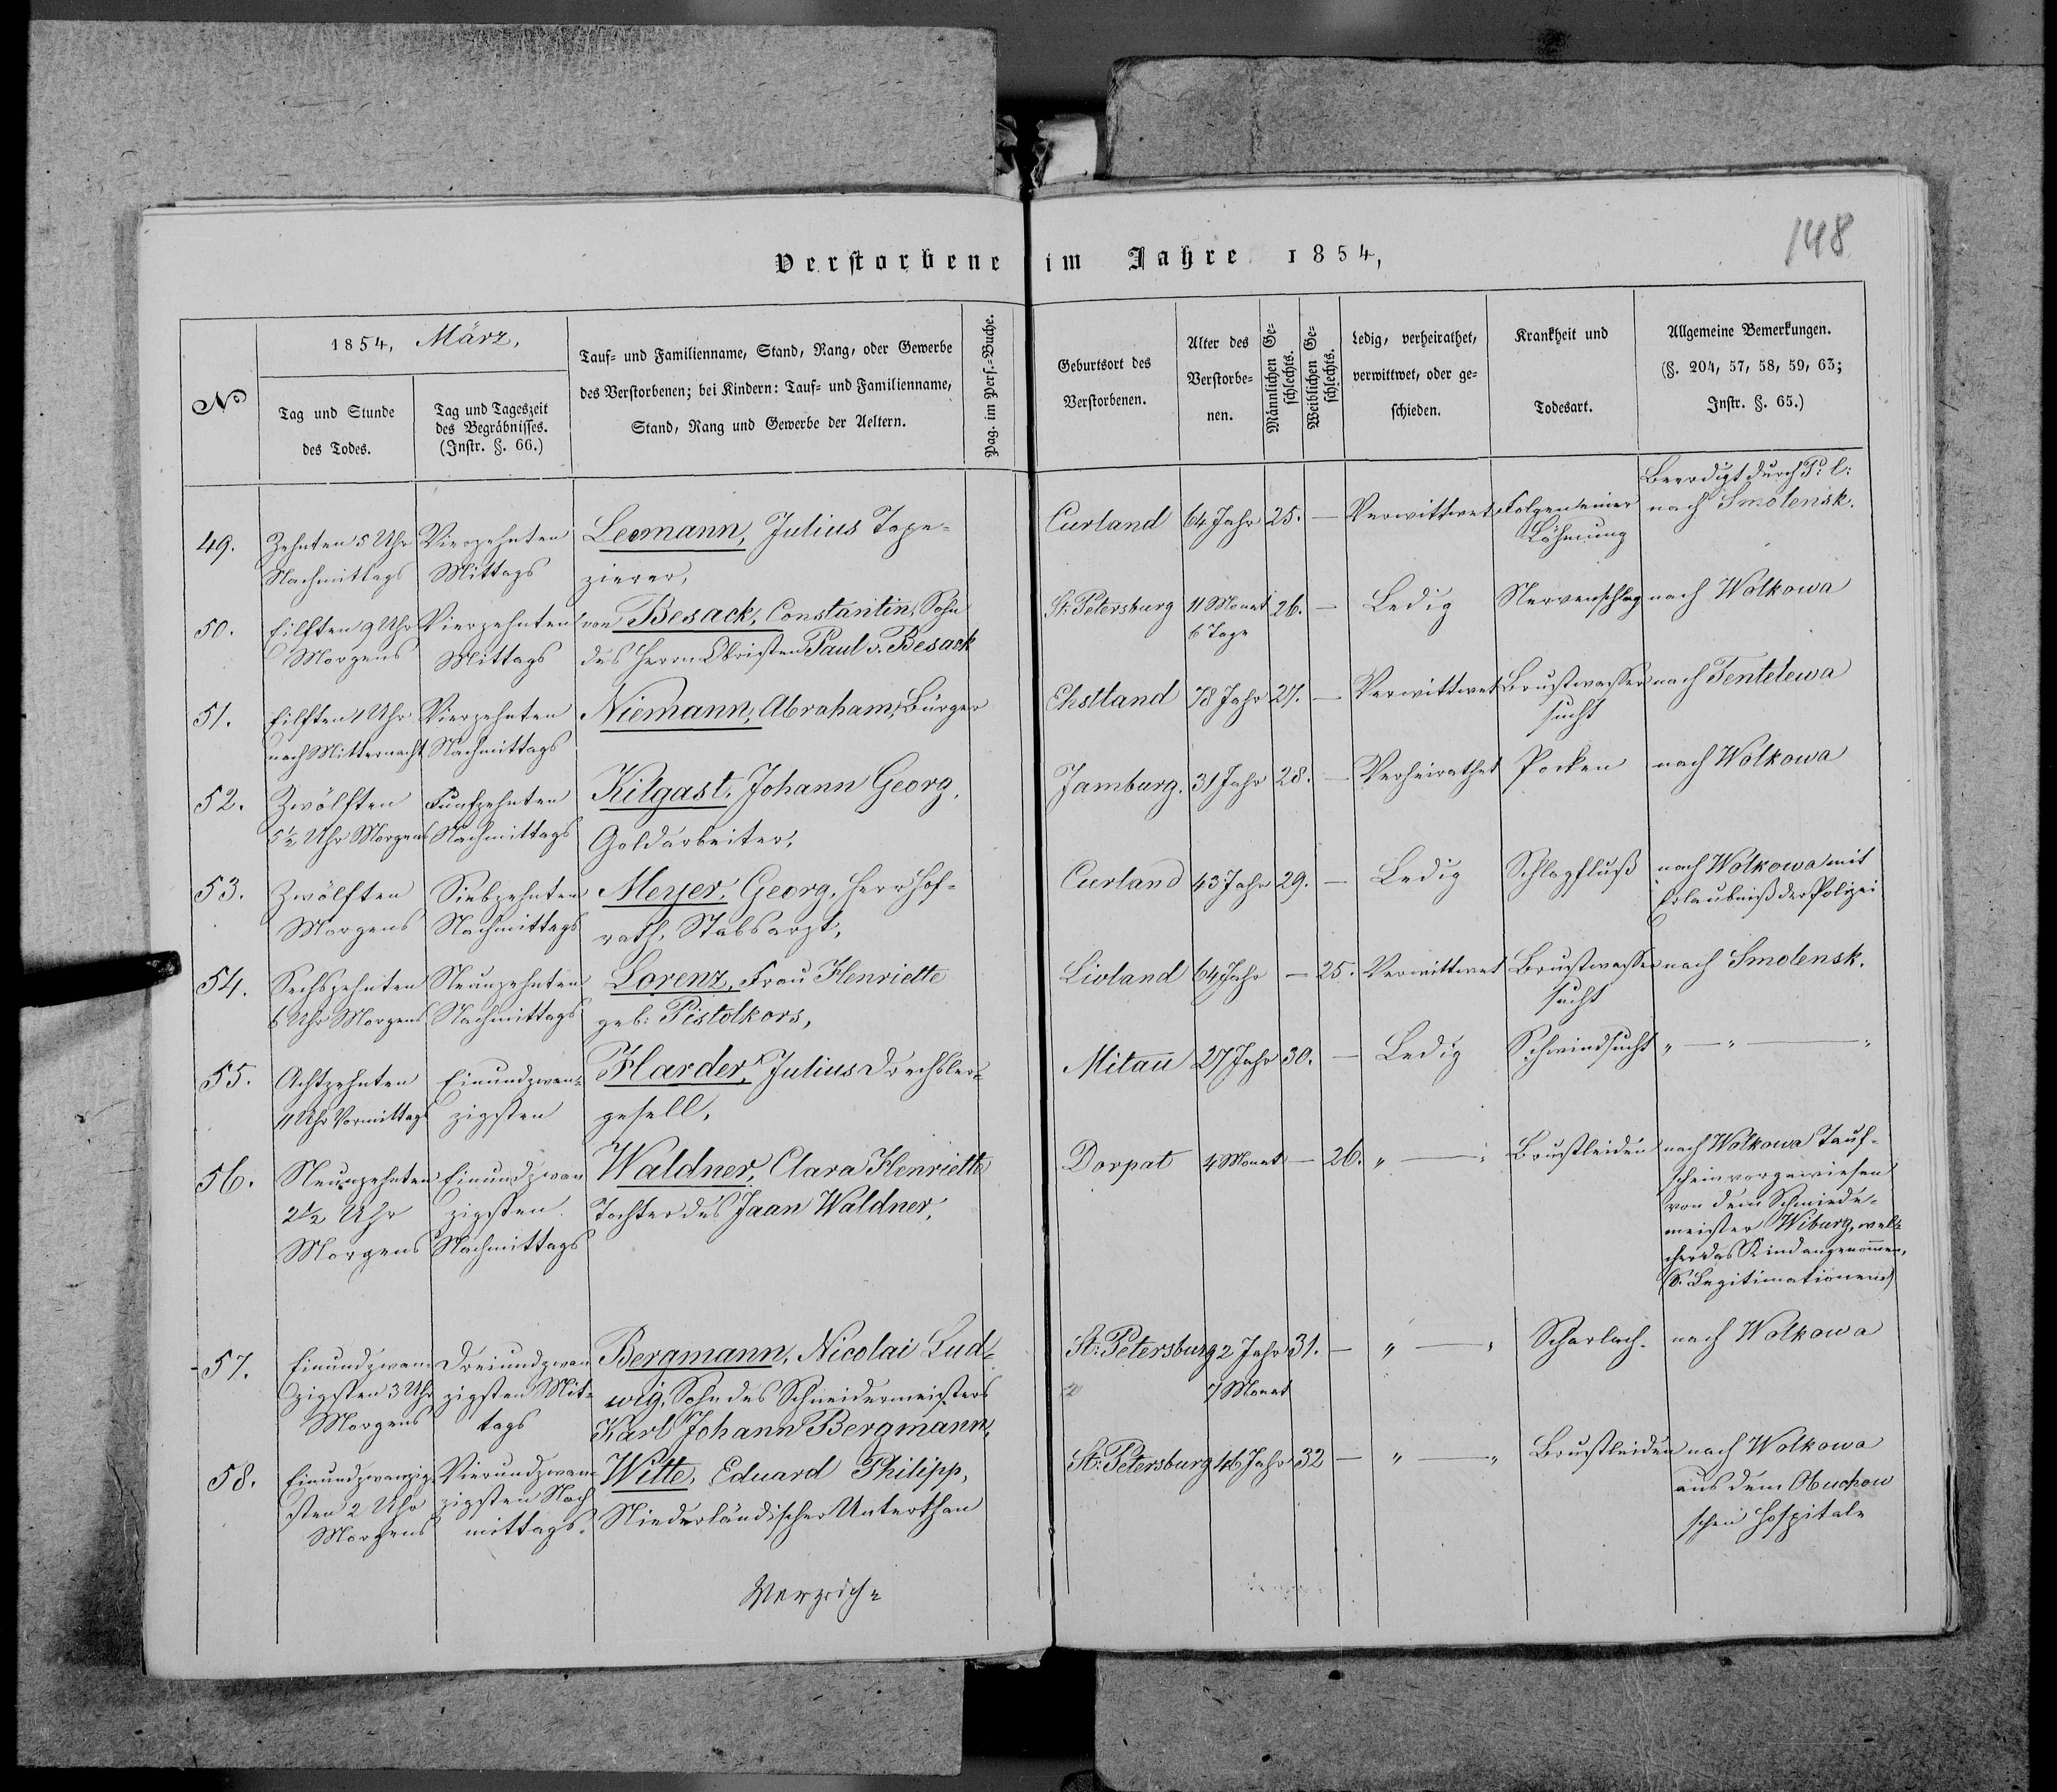 148
Verstorbene im Jahre 1854,
No
1854, März,
Tag und Stunde
des Todes.
Tag und Tageszeit
des Begräbnisses.
(Instr. §. 66.)
Tauf- und Familienname, Stand, Rang, oder Gewerbe
des Verstorbenen; bei Kindern: Tauf- und Familienname,
Stand, Rang und Gewerbe der Aeltern.
Pag. im Pers.-Buche.
Geburtsort des
Verstorbenen.
Alter des
Verstorbe-
nen.
Männlichen Ge-
schlechts.
Weiblichen Ge-
schlechts.
Ledig, verheirathet,
verwittwet, oder ge-
schieden.
Krankheit und
Todesart.
Allgemeine Bemerkungen.
(§. 204, 57, 58, 59, 63;
Instr. §. 65.)
49.
Zehnten 5 Uhr
Nachmittags
Vierzehnten
Mittags
Leomann, Julius Tape-
zierer,
Curland
64 Jahr
25.
—
Verwittwet
Folgen einer
Löhmung
Beerdigt durch P: l:
nach Smolensk.
50.
Eilften 9 Uhr
Morgens
Vierzehnten
Mittags
von Besack, Constantin, Sohn
des Herrn Obristen Paul v. Besack
St: Petersburg
11 Monat
6 Tage
26.
—
Ledig
Nervenschlag
nach Wolkowa
51.
Eilften 1 Uhr
nach Mitternacht
Vierzehnten
Nachmittags
Niemann, Abraham, Bürger
Ehstland
78 Jahr
27.
—
Verwittwet
Brustwasser
sucht
nach Tentelewa
52.
Zwölften
5½ Uhr Morgens
Funfzehnten
Nachmittags
Kilgast, Johann Georg,
Goldarbeiter,
Jamburg.
31 Jahr
28.
—
Verheirathet
Pocken
nach Wolkowa
53.
Zwölften
Morgens
Siebzehnten
Nachmittags
Meyer, Georg, Herr Hof-
rath, Stabsarzt,
Curland
43 Jahr
29.
—
Ledig
Schlagfluß
nach Wolkowa mit
Erlaubniß der Polizei
54.
Sechszehnten
6 Uhr Morgens
Neunzehnten
Nachmittags
Lorenz, Frau Henriette
geb: Pistolkors,
Livland
64 Jahr
—
25.
Verwittwet
Brustwasser
sucht
nach Smolensk.
55.
Achtzehnten
11 Uhr Vormittags
Einundzwan-
zigsten
Harder, Julius Drechsler-
gesell,
Mitau
27 Jahr
30.
—
Ledig
Schwindsucht
„ — „ — „
56.
Neunzehnten
2½ Uhr
Morgens
Einundzwan
zigsten.
Nachmittags
Waldner, Clara Henriette
Tochter des Jaan Waldner,
Dorpat
4 Monat
—
26.
„ — „
Brustleiden
nach Wolkowa Tauf-
schein vorgewiesen
von dem Schmiede-
meister Wiburg, wel-
cher das Kind angenommen,
(S. Legitimationen)
57.
Einundzwan-
zigsten 3 Uhr
Morgens
Dreiundzwan
zigsten Mit-
tags
Bergmann, Nicolai Lud-
wig, Sohn des Schneidermeisters
Karl Johann Bergmann,
St: Petersburg
2 Jahr
7 Monat
31.
—
„ — „
Scharlach.
nach Wolkowa
58.
Einundzwanzig-
sten 2 Uhr
Morgens
Vierundzwan-
zigsten Nach
mittags.
Witte, Eduard Philipp,
Niederländischer Unterthan
St: Petersburg
46 Jahr
32
—
„ — „
Brustleiden
nach Wolkowa
aus dem Obuchow
schen Hospitale
Verzeich-